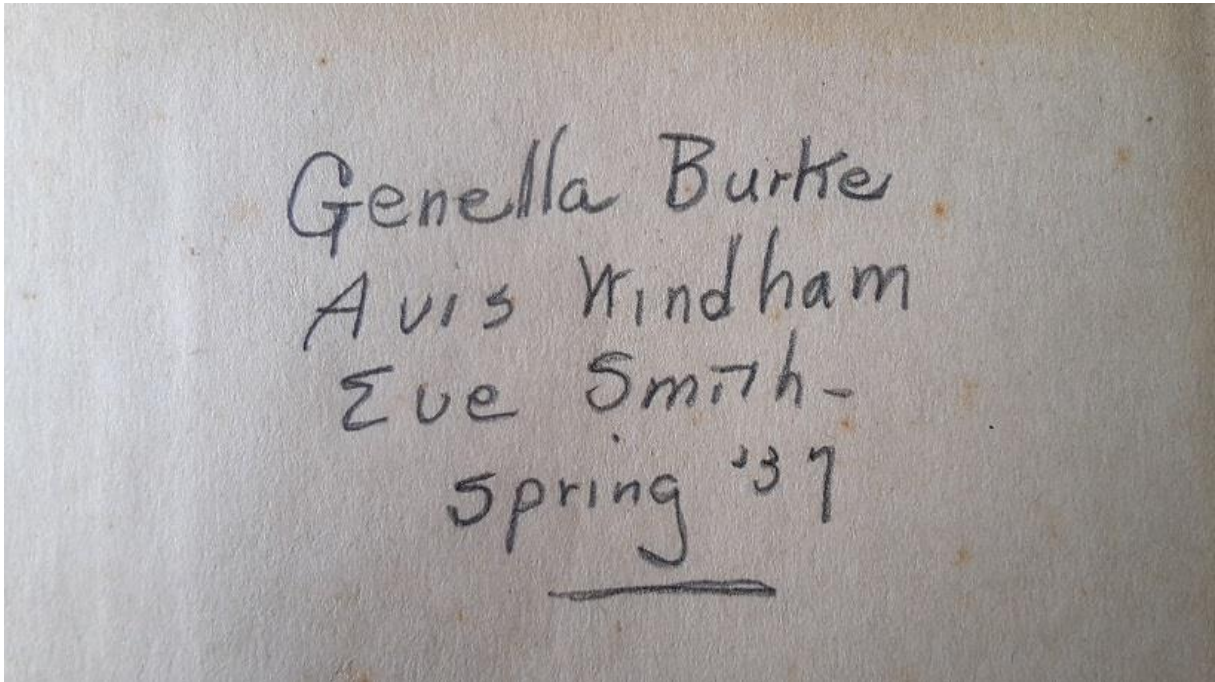 Genella Burke
Avis Windham
Eve Smith-
Spring '37